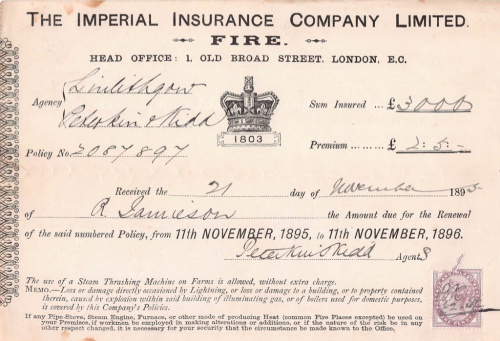 THE IMPERIAL INSURANCE COMPANY LIMITED.
FIRE.
HEAD OFFICE: 1, OLD BROAD STREET, LONDON, E.C.
Agency Linlithgow
Peterkin & Kidd
1803
Sum Insured ... £ 3000
Premium ......... £ 2 : 5 : -
Policy No. 2087897
Received the 21 day of November 1895
of R. Jamieson the Amount due for the Renewal
of the said numbered Policy, from 11th NOVEMBER, 1895, to 11th NOVEMBER, 1896.
Peterkin & Kidd Agents
The use of a Steam Thrashing Machine on Farms is allowed, without extra charge.
MEMO.—Loss or damage directly occasioned by Lightning, or loss or damage to a building, or to property contained
therein, caused by explosion within said building of illuminating gas, or of boilers used for domestic purposes,
is covered by this Company's Policies.
If any Pipe-Stove, Steam Engine, Furnace, or other mode of producing Heat (common Fire Places excepted) be used on
your Premises, if workmen be employed in making alterations or additions, or if the nature of the risk be in any
other respect changed, it is necessary for your security that the circumstance be made known to the Office.